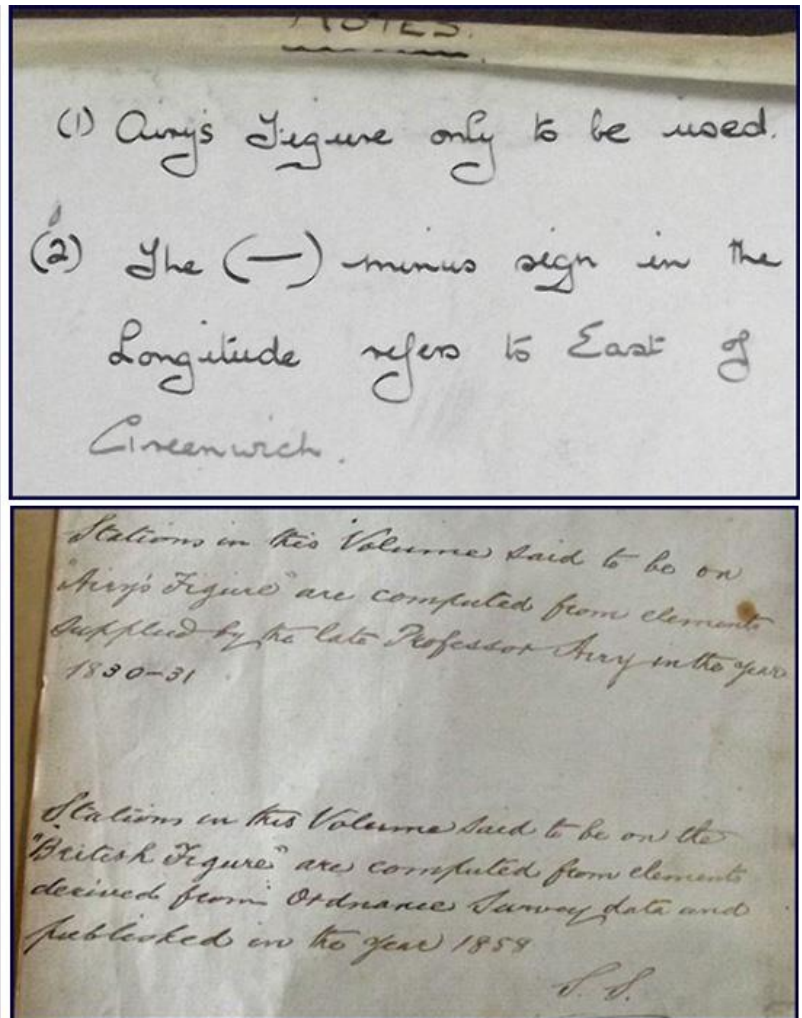 NOTES.
(1) Airy's Figure only to be used.
(2) The (—) minus sign in the
Longitude refers to East of
Greenwich.
Stations in this Volume said to be on
"Airy's Figure" are computed from elements
supplied by the late Professor Airy in the year
1830-31
Stations in this Volume said to be on the
"British Figure" are computed from elements
derived from Ordnance Survey data and
published in the year 1858
S. S.